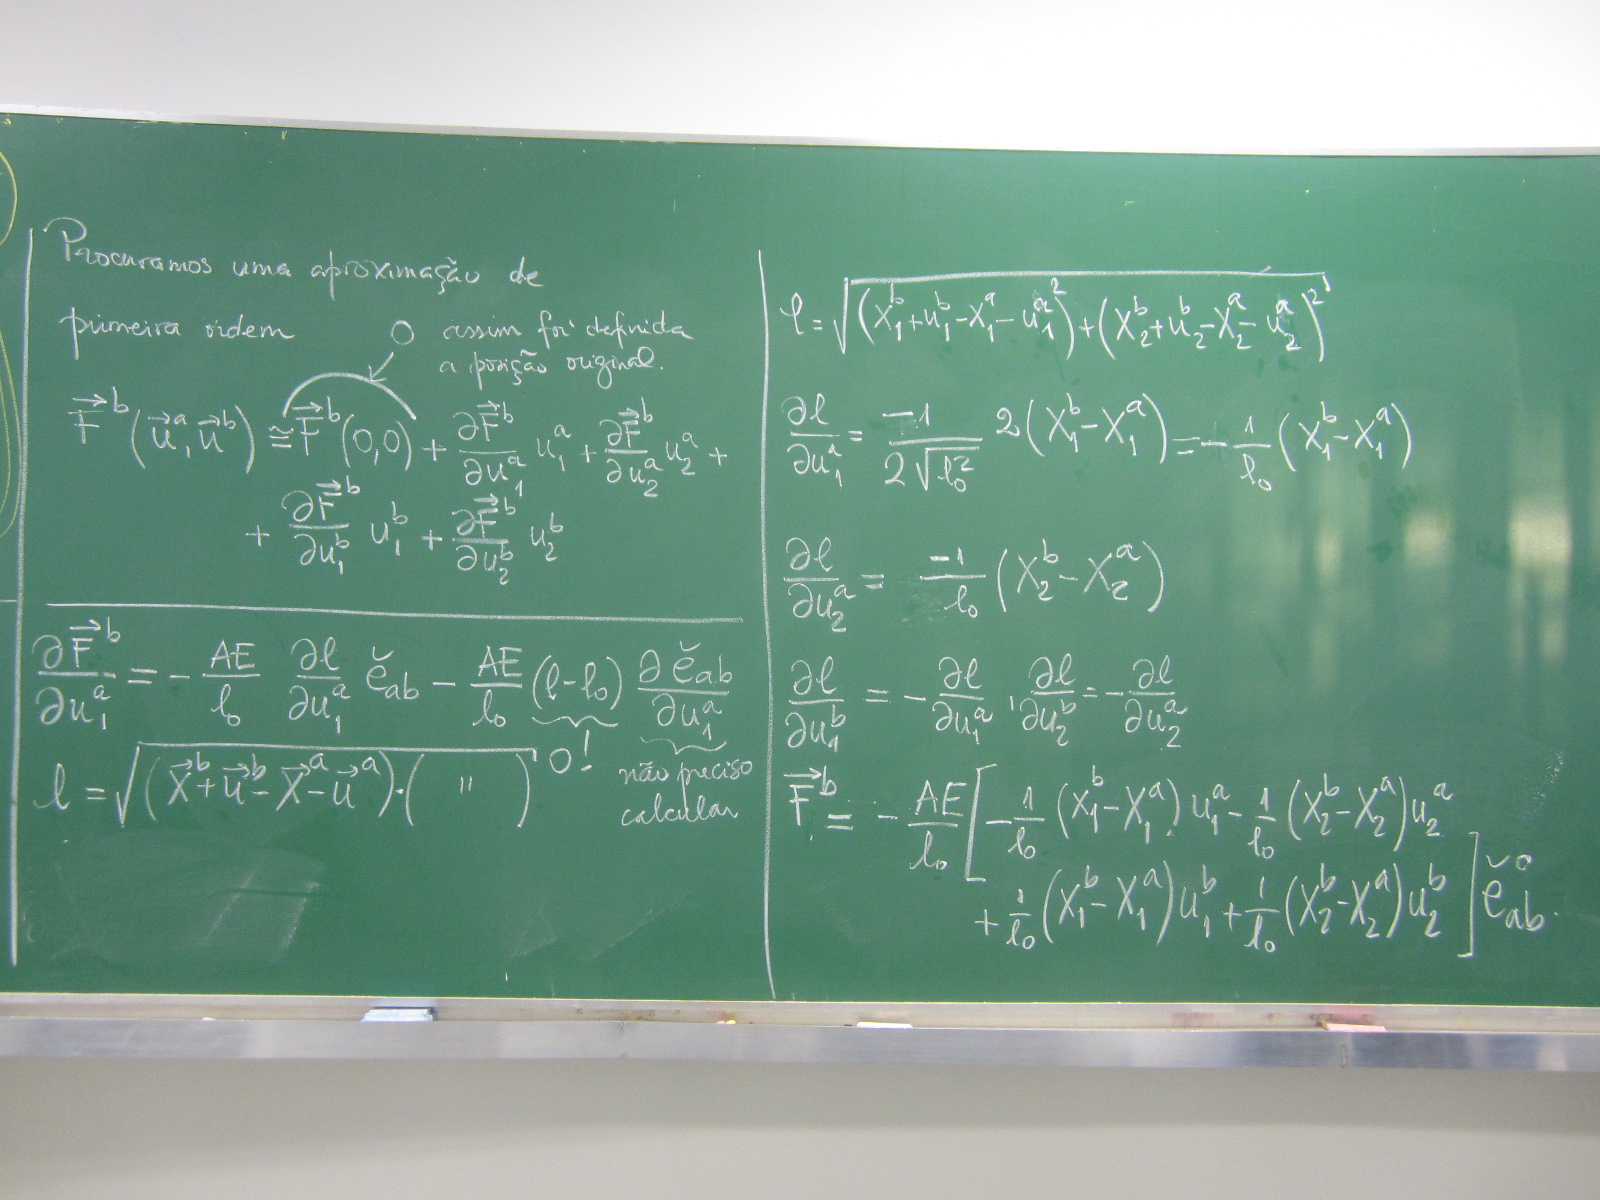 Procuramos uma aproximação de
primeira ordem
0 assim foi definida
a posição original.
$\vec{F}^b(\vec{u}^a, \vec{u}^b) \cong \vec{F}^b(0,0) + \frac{\partial \vec{F}^b}{\partial u_1^a} u_1^a + \frac{\partial \vec{F}^b}{\partial u_2^a} u_2^a +$
$+ \frac{\partial \vec{F}^b}{\partial u_1^b} u_1^b + \frac{\partial \vec{F}^b}{\partial u_2^b} u_2^b$
$\frac{\partial \vec{F}^b}{\partial u_1^a} = - \frac{AE}{l_0} \frac{\partial l}{\partial u_1^a} \check{e}_{ab} - \frac{AE}{l_0} (l - l_0) \frac{\partial \check{e}_{ab}}{\partial u_1^a}$
0!
não preciso
calcular
$l = \sqrt{(\vec{X}^b + \vec{u}^b - \vec{X}^a - \vec{u}^a) \cdot ( \text{ " } )}$
$l = \sqrt{(X_1^b + u_1^b - X_1^a - u_1^a)^2 + (X_2^b + u_2^b - X_2^a - u_2^a)^2}$
$\frac{\partial l}{\partial u_1^a} = \frac{-1}{2\sqrt{l_0^2}} 2(X_1^b - X_1^a) = - \frac{1}{l_0} (X_1^b - X_1^a)$
$\frac{\partial l}{\partial u_2^a} = \frac{-1}{l_0} (X_2^b - X_2^a)$
$\frac{\partial l}{\partial u_1^b} = - \frac{\partial l}{\partial u_1^a} , \frac{\partial l}{\partial u_2^b} = - \frac{\partial l}{\partial u_2^a}$
$\vec{F}^b = - \frac{AE}{l_0} [ - \frac{1}{l_0} (X_1^b - X_1^a) u_1^a - \frac{1}{l_0} (X_2^b - X_2^a) u_2^a$
$+ \frac{1}{l_0} (X_1^b - X_1^a) u_1^b + \frac{1}{l_0} (X_2^b - X_2^a) u_2^b ] \check{e}_{ab}^0.$